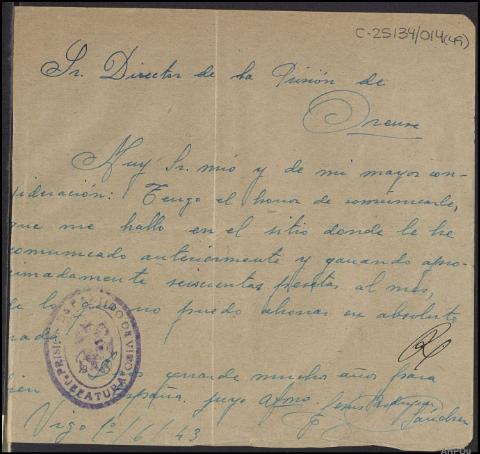 C-25134/014(49)
Sr. Director de la Prisión de
Orense
Muy Sr. mio y de mi mayor con-
sideración: Tengo el honor de comunicarle,
que me hallo en el sitio donde le he
comunicado anteriormente y ganando apro-
ximadamente seiscientas pesetas al mes,
de lo que no puedo ahorrar en absoluto
nada
guarde muchos años para
bien España. suyo afmo. Jesús Rodriguez
Sánchez
Vigo 1º/6/43
PRISION PARTIDO DE VIGO
JEFATURA
AHPOu